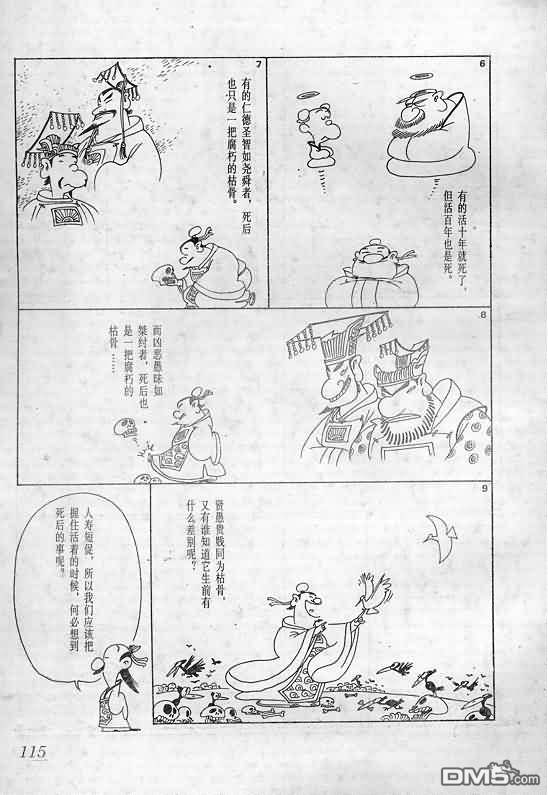 6
有的活十年就死了，
但活百年也是死。
7
有的仁德圣智如尧舜者，死后
也只是一把腐朽的枯骨。
8
而凶恶愚昧如
桀纣者，死后也
是一把腐朽的
枯骨……
9
贤愚贵贱同为枯骨，
又有谁知道它生前有
什么差别呢？
人寿短促，所以我们应该把
握住活着的时候，何必想到
死后的事呢？
115
漫画人
DM5.com